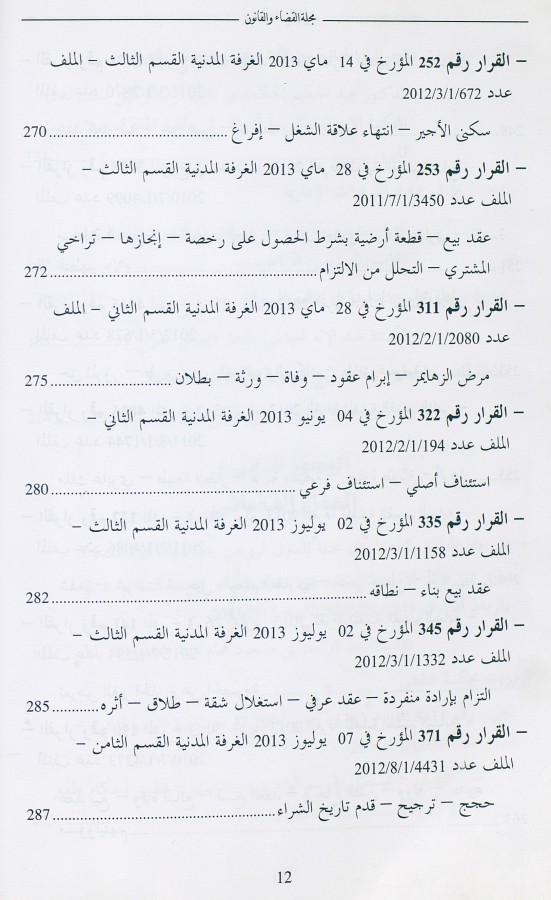 مجلة القضاء والقانون
– القرار رقم 252 المؤرخ في 14 ماي 2013 الغرفة المدنية القسم الثالث – الملف
عدد 2012/3/1/672
سكنى الأجير – انتهاء علاقة الشغل – إفراغ 270
– القرار رقم 253 المؤرخ في 28 ماي 2013 الغرفة المدنية القسم الثالث –
الملف عدد 2011/7/1/3450
عقد بيع – قطعة أرضية بشرط الحصول على رخصة – إنجازها – تراخي
المشتري – التحلل من الالتزام 272
– القرار رقم 311 المؤرخ في 28 ماي 2013 الغرفة المدنية القسم الثاني – الملف
عدد 2012/2/1/2080
مرض الزهايمر – إبرام عقود – وفاة – ورثة – بطلان 275
– القرار رقم 322 المؤرخ في 04 يونيو 2013 الغرفة المدنية القسم الثاني –
الملف عدد 2012/2/1/194
استئناف أصلي – استئناف فرعي 280
– القرار رقم 335 المؤرخ في 02 يوليوز 2013 الغرفة المدنية القسم الثالث –
الملف عدد 2012/3/1/1158
عقد بيع بناء – نطاقه 282
– القرار رقم 345 المؤرخ في 02 يوليوز 2013 الغرفة المدنية القسم الثالث –
الملف عدد 2012/3/1/1332
التزام بإرادة منفردة – عقد عرفي – استغلال شقة – طلاق – أثره 285
– القرار رقم 371 المؤرخ في 07 يوليوز 2013 الغرفة المدنية القسم الثامن –
الملف عدد 2012/8/1/4431
حجج – ترجيح – قدم تاريخ الشراء 287
12